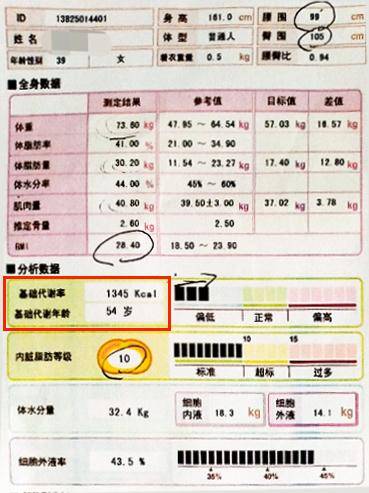 ID 13825014401 身高 161.0 cm 腰围 99 cm
姓名 体型 普通人 臀围 105 cm
年龄性别 39 女 着衣重量 0.5 kg 腰臀比 0.94
■全身数据
测定结果 参考值 目标值 差值
体重 73.60 kg 47.95 ~ 64.54 kg 57.03 kg 16.57 kg
体脂肪率 41.00 % 21.00 ~ 34.90
体脂肪量 30.20 kg 11.54 ~ 23.27 kg 17.40 kg 12.80 kg
体水分率 44.00 % 45% ~ 60%
肌肉量 40.80 kg 39.50±3.00 kg 37.02 kg 3.78 kg
推定骨量 2.60 kg 2.50
BMI 28.40 18.50 ~ 23.90
■分析数据
基础代谢率 1345 Kcal
基础代谢年龄 54 岁
偏低 正常 偏高
10 15
内脏脂肪等级 10
标准 超标 过多
体水分量 32.4 Kg 细胞内液 18.3 kg 细胞外液 14.1 kg
细胞外液率 43.5 %
35% 40% 45%